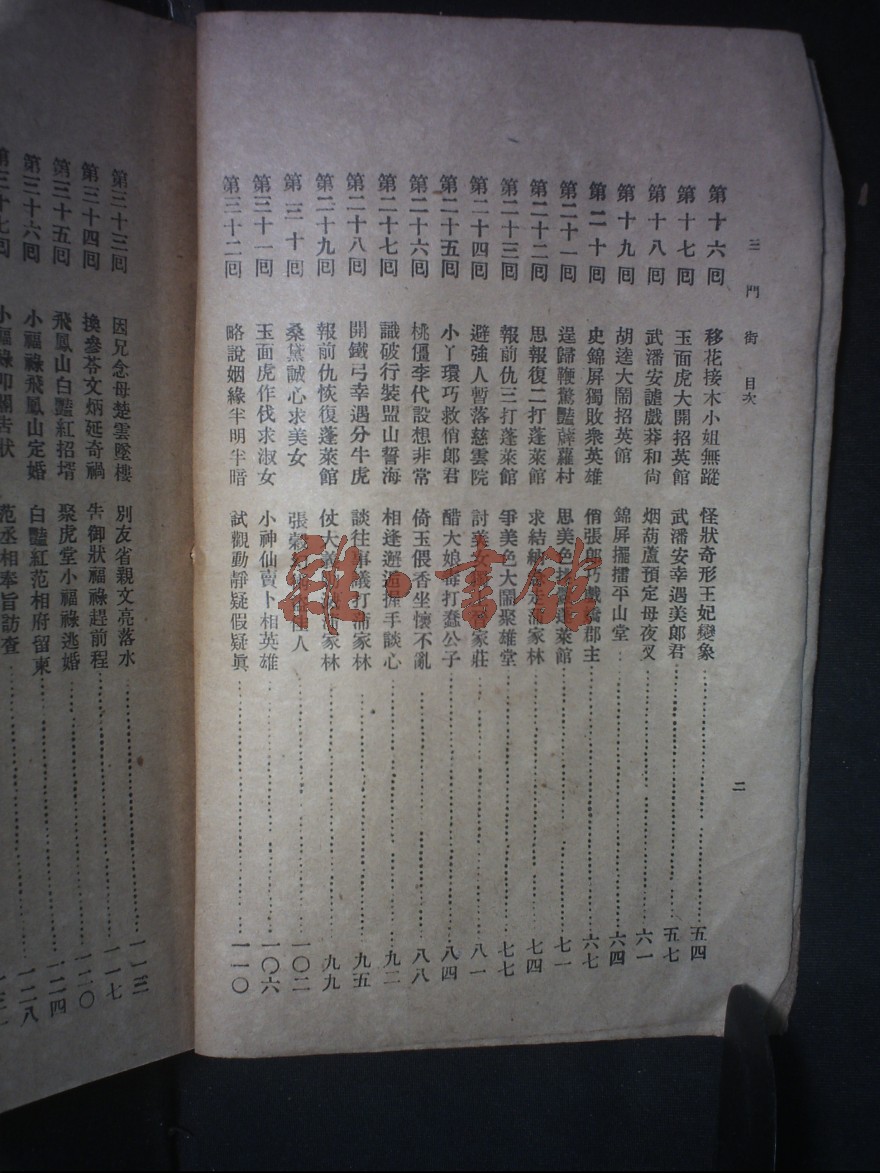 三門街 目次
二
第十六回 移花接木小姐無蹤 怪狀奇形王妃變象 五四
第十七回 玉面虎大開招英館 武潘安幸遇美郎君 五七
第十八回 武潘安謔戲莽和尙 烟葫蘆預定母夜叉 六一
第十九回 胡逵大鬧招英館 錦屏擺擂平山堂 六四
第二十回 史錦屏獨敗衆英雄 俏張郎巧戲 郡主 六七
第二十一回 逞歸鞭驚豔薜蘿村 思美色 蓬萊館 七一
第二十二回 思報復二打蓬萊館 求結 走浦家林 七四
第二十三回 報前仇三打蓬萊館 爭美色大鬧聚雄堂 七七
第二十四回 避強人暫落慈雲院 討美女 家莊 八一
第二十五回 小丫環巧救俏郎君 醋大娘毒打蠢公子 八四
第二十六回 桃僵李代設想非常 倚玉偎香坐懷不亂 八八
第二十七回 識破行裝盟山誓海 相逢邂逅握手談心 九二
第二十八回 開鐵弓幸遇分牛虎 談往事議打浦家林 九五
第二十九回 報前仇恢復蓬萊館 仗大義 浦家林 九九
第三十回 桑黛誠心求美女 張穀 佳人 一〇二
第三十一回 玉面虎作伐求淑女 小神仙賣卜相英雄 一〇六
第三十二回 略說姻緣半明半暗 試觀動靜疑假疑眞 一一〇
第三十三回 因兄念母楚雲墜樓 別友省親文亮落水 一一三
第三十四回 換參苓文炳延奇禍 吿御狀福祿趕前程 一一七
第三十五回 飛鳳山白豔紅招壻 聚虎堂小福祿逃婚 一二〇
第三十六回 小福祿飛鳳山定婚 白豔紅范相府留柬 一二四
第三十七回 小福祿叩閽吿狀 范丞相奉旨訪查 一二八
雜書館